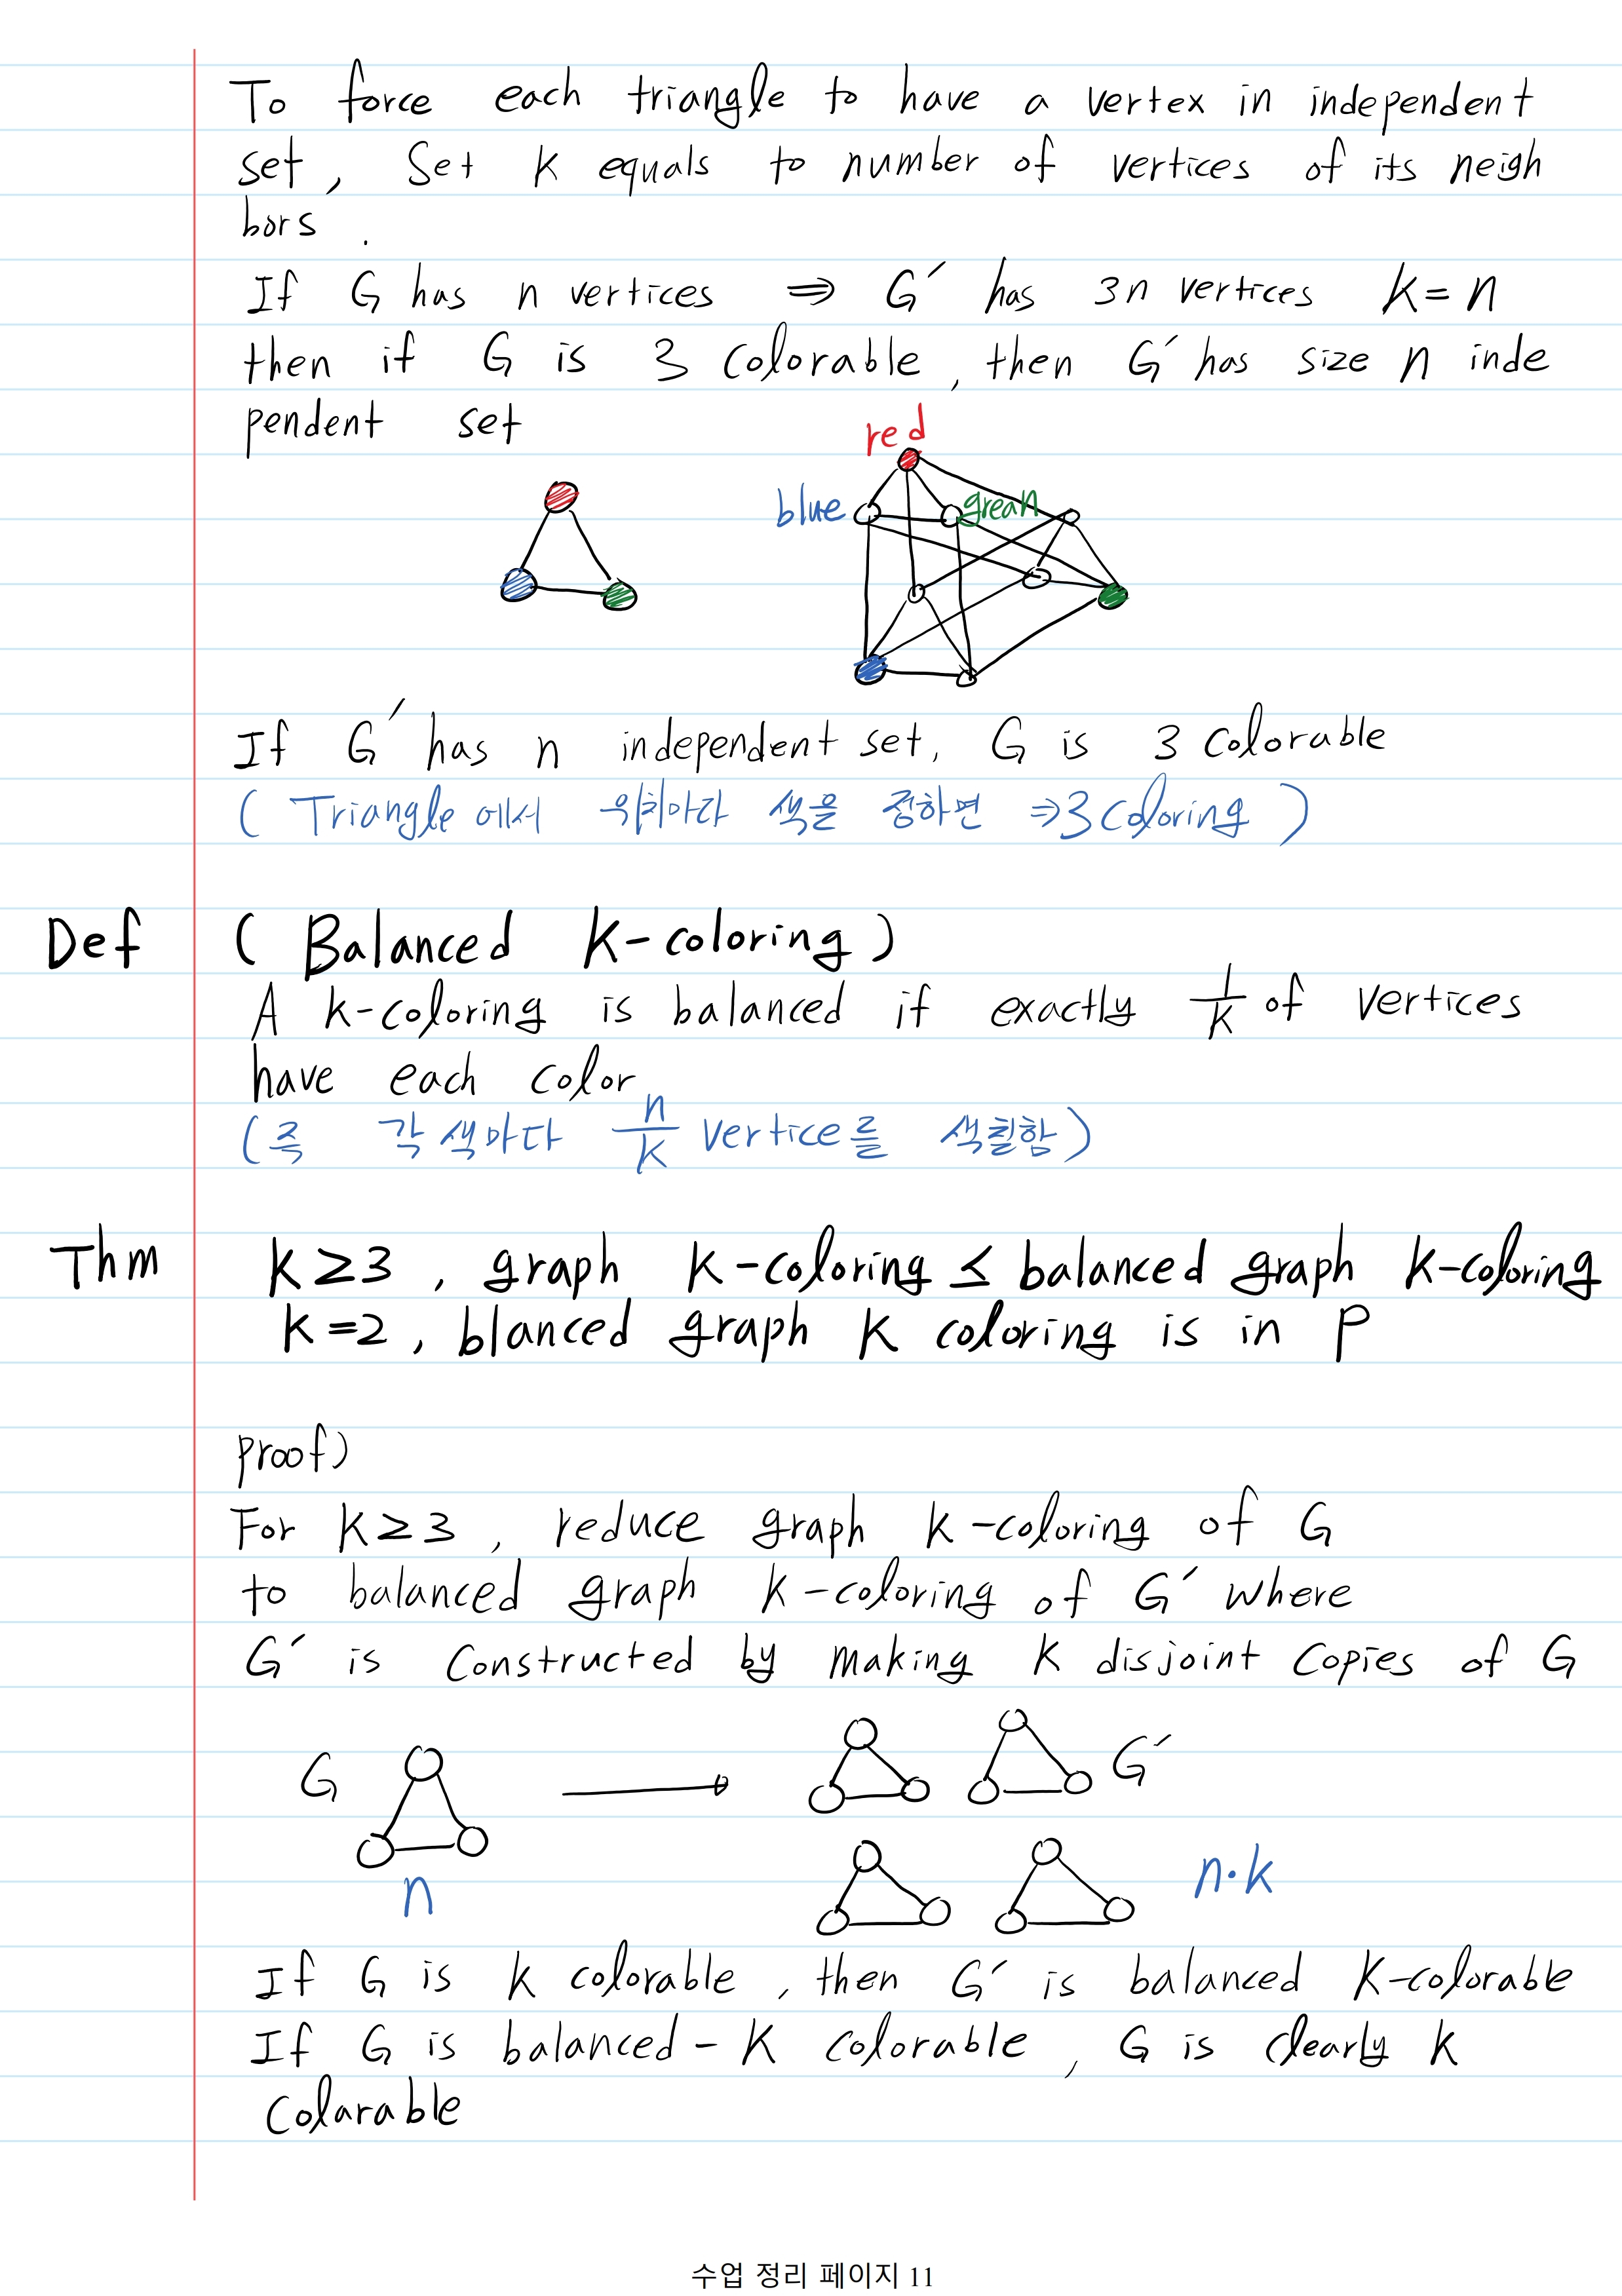 To force each triangle to have a vertex in independent
set, Set k equals to number of vertices of its neigh
bors.
If G has n vertices ⇒ G′ has 3n vertices K=n
then if G is 3 colorable, then G′ has size n inde
pendent set
red
blue
grean
If G′ has n independent set, G is 3 colorable
( Triangle 에서 위치마다 색을 정하면 ⇒3 coloring )
Def ( Balanced K-coloring )
A k-coloring is balanced if exactly 1/k of vertices
have each color
(즉 각 색마다 n/k vertice를 색칠함)
Thm K≥3, graph K-coloring ≤ balanced graph K-coloring
K=2, blanced graph K coloring is in P
proof)
For K≥3, reduce graph k-coloring of G
to balanced graph k-coloring of G′ where
G′ is constructed by making K disjoint copies of G
G
G′
n
n·k
If G is k colorable, then G′ is balanced K-colorable
If G is balanced-K colorable, G is clearly k
colarable
수업 정리 페이지 11